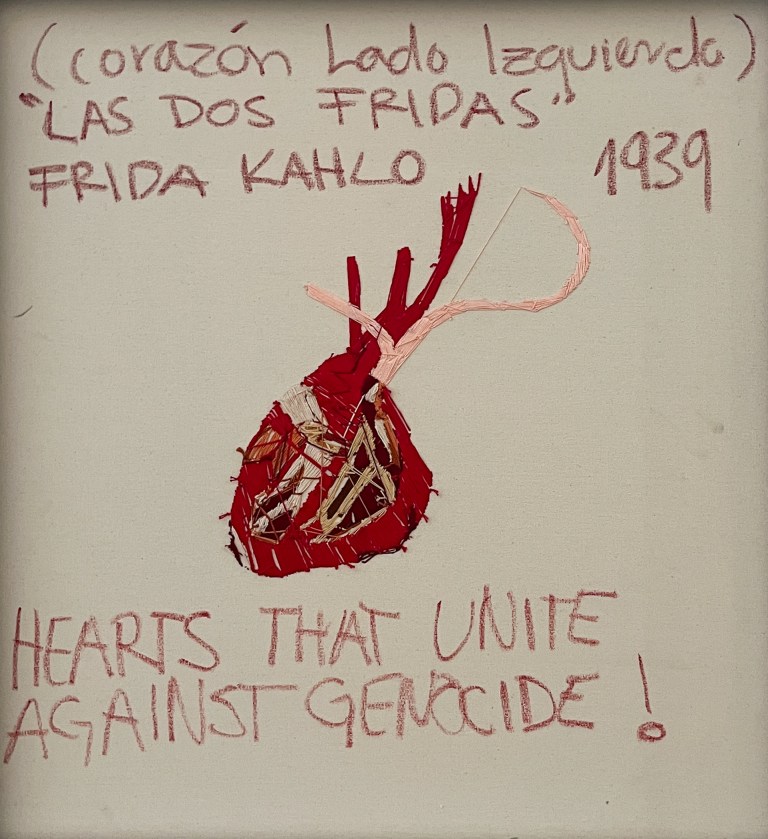 (corazón Lado Izquierda)
"LAS DOS FRIDAS"
FRIDA KAHLO 1939
HEARTS THAT UNITE
AGAINST GENOCIDE!